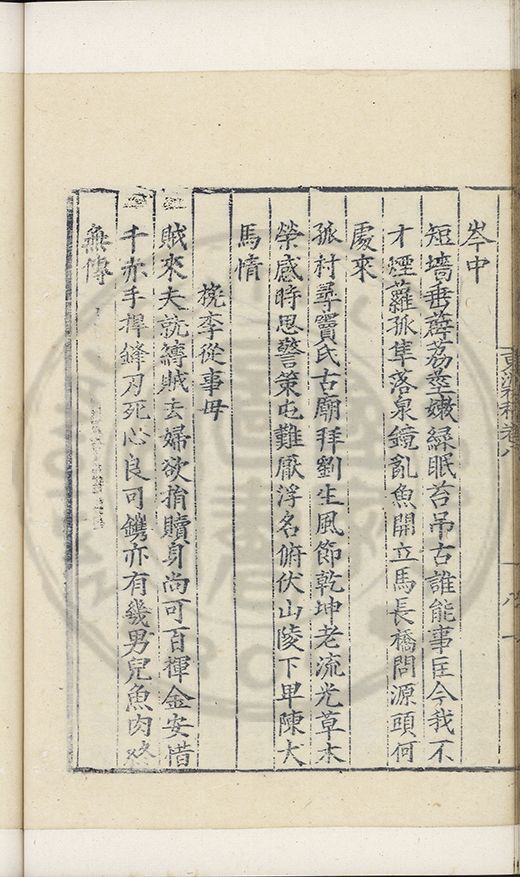 岑中
短墻垂薜荔莖嫩綠眠苔吊古誰能事匡今我不
才煙蘿孤隼落泉鏡亂魚開立馬長橋問源頭何
處來
孤村尋竇氏古廟拜劉生風節乾坤老流光草木
榮感時思警策屯難厭浮名俯伏山陵下卑陳犬
馬情
挽李從事母
賊來夫就縛賊去婦欲捐贖身尚可百揮金安惜
千赤手捍鋒刃死心良可鐫亦有幾男兒魚肉終
無傳
卷八